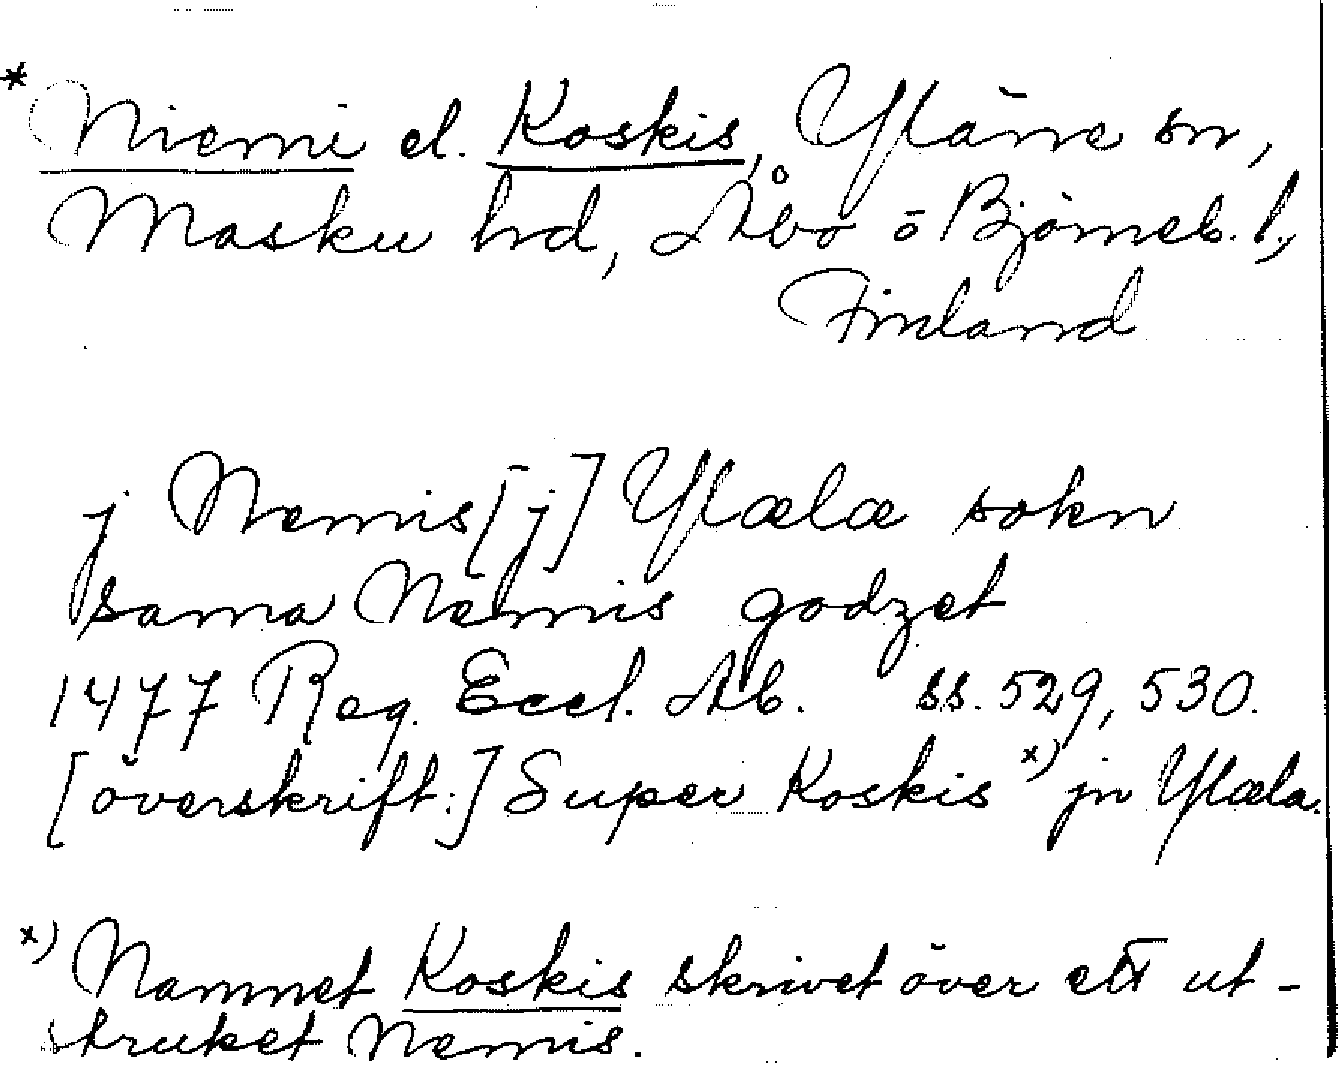 * Niemi el. Koskis, Yläne sn,
Masku hd, Åbo o Björneb. l,
Finland
j Nemis [j] Ylælæ sokn
sama Nemis godzet
1477 Reg. Eccl. Ab. ss. 529, 530.
[överskrift:] Super Koskis x) jn Ylæla.
x) Namnet Koskis skrivet över ett ut-
struket Nemis.